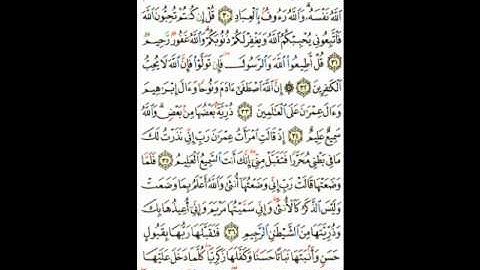 اللَّهُ نَفْسَهُ ۗ وَاللَّهُ رَءُوفٌ بِالْعِبَادِ ٣٠ قُلْ إِن كُنتُمْ تُحِبُّونَ اللَّهَ
فَاتَّبِعُونِي يُحْبِبْكُمُ اللَّهُ وَيَغْفِرْ لَكُمْ ذُنُوبَكُمْ ۗ وَاللَّهُ غَفُورٌ رَّحِيمٌ
٣١ قُلْ أَطِيعُوا اللَّهَ وَالرَّسُولَ ۖ فَإِن تَوَلَّوْا فَإِنَّ اللَّهَ لَا يُحِبُّ
الْكَافِرِينَ ٣٢ ۞ إِنَّ اللَّهَ اصْطَفَىٰ آدَمَ وَنُوحًا وَآلَ إِبْرَاهِيمَ
وَآلَ عِمْرَانَ عَلَى الْعَالَمِينَ ٣٣ ذُرِّيَّةً بَعْضُهَا مِن بَعْضٍ ۗ وَاللَّهُ
سَمِيعٌ عَلِيمٌ ٣٤ إِذْ قَالَتِ امْرَأَتُ عِمْرَانَ رَبِّ إِنِّي نَذَرْتُ لَكَ
مَا فِي بَطْنِي مُحَرَّرًا فَتَقَبَّلْ مِنِّي ۖ إِنَّكَ أَنتَ السَّمِيعُ الْعَلِيمُ ٣٥ فَلَمَّا
وَضَعَتْهَا قَالَتْ رَبِّ إِنِّي وَضَعْتُهَا أُنثَىٰ وَاللَّهُ أَعْلَمُ بِمَا وَضَعَتْ
وَلَيْسَ الذَّكَرُ كَالْأُنثَىٰ ۖ وَإِنِّي سَمَّيْتُهَا مَرْيَمَ وَإِنِّي أُعِيذُهَا بِكَ
وَذُرِّيَّتَهَا مِنَ الشَّيْطَانِ الرَّجِيمِ ٣٦ فَتَقَبَّلَهَا رَبُّهَا بِقَبُولٍ
حَسَنٍ وَأَنبَتَهَا نَبَاتًا حَسَنًا وَكَفَّلَهَا زَكَرِيَّا ۖ كُلَّمَا دَخَلَ عَلَيْهَا